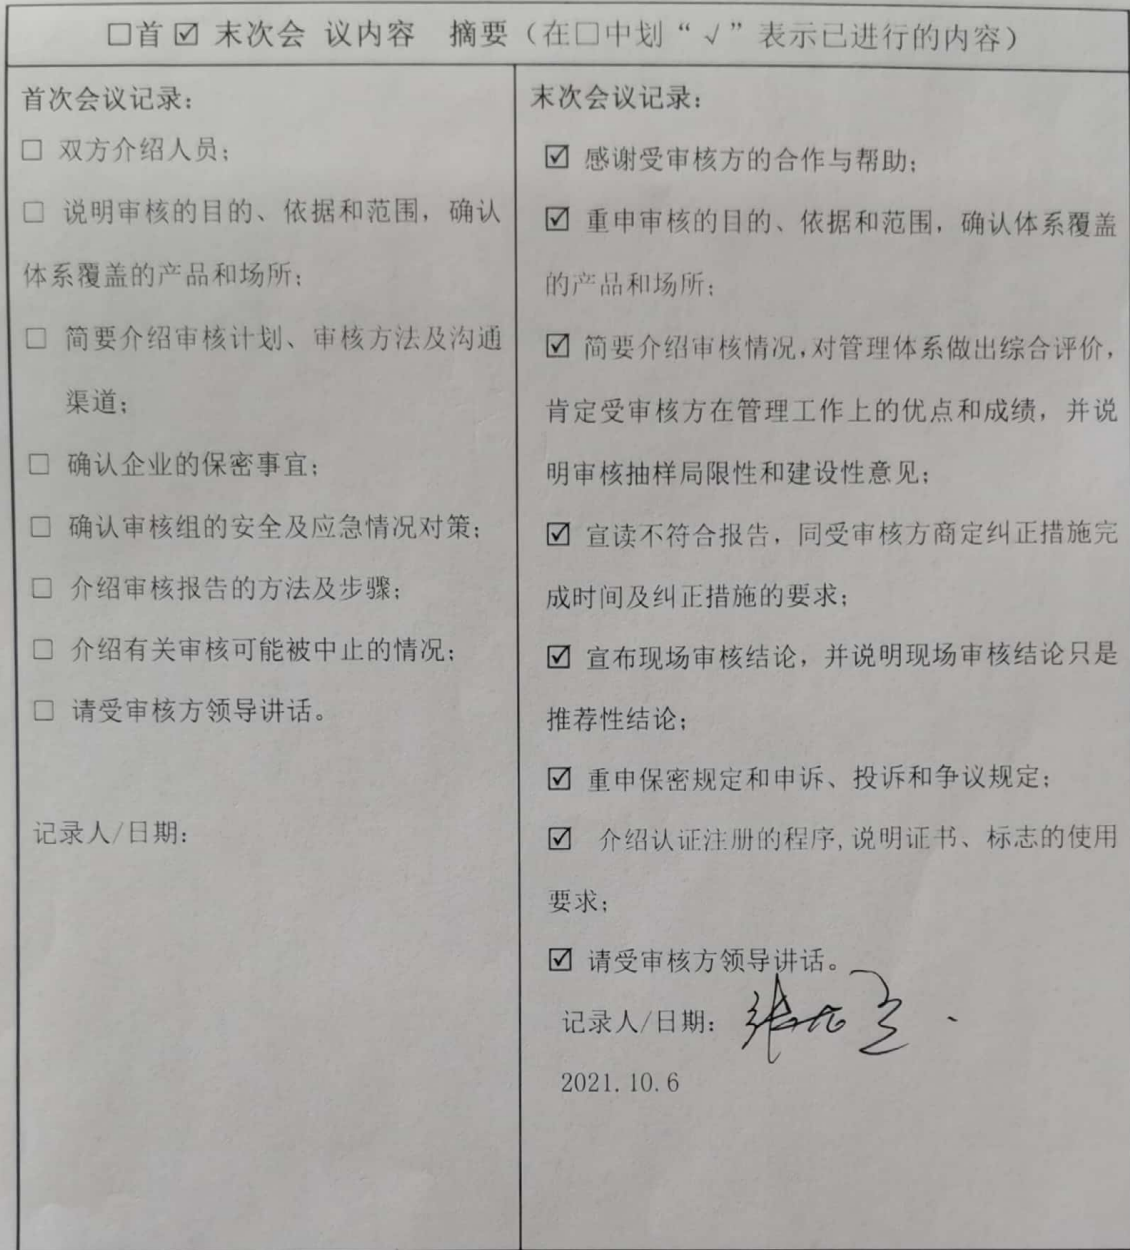 □首 ☑ 末次会 议内容 摘要（在□中划“√”表示已进行的内容）
首次会议记录：
□ 双方介绍人员；
□ 说明审核的目的、依据和范围，确认
体系覆盖的产品和场所；
□ 简要介绍审核计划、审核方法及沟通
渠道；
□ 确认企业的保密事宜；
□ 确认审核组的安全及应急情况对策；
□ 介绍审核报告的方法及步骤；
□ 介绍有关审核可能被中止的情况；
□ 请受审核方领导讲话。
记录人/日期：
末次会议记录：
☑ 感谢受审核方的合作与帮助；
☑ 重申审核的目的、依据和范围，确认体系覆盖
的产品和场所；
☑ 简要介绍审核情况，对管理体系做出综合评价，
肯定受审核方在管理工作上的优点和成绩，并说
明审核抽样局限性和建设性意见；
☑ 宣读不符合报告，同受审核方商定纠正措施完
成时间及纠正措施的要求；
☑ 宣布现场审核结论，并说明现场审核结论只是
推荐性结论；
☑ 重申保密规定和申诉、投诉和争议规定；
☑ 介绍认证注册的程序,说明证书、标志的使用
要求；
☑ 请受审核方领导讲话。
记录人/日期：
2021.10.6